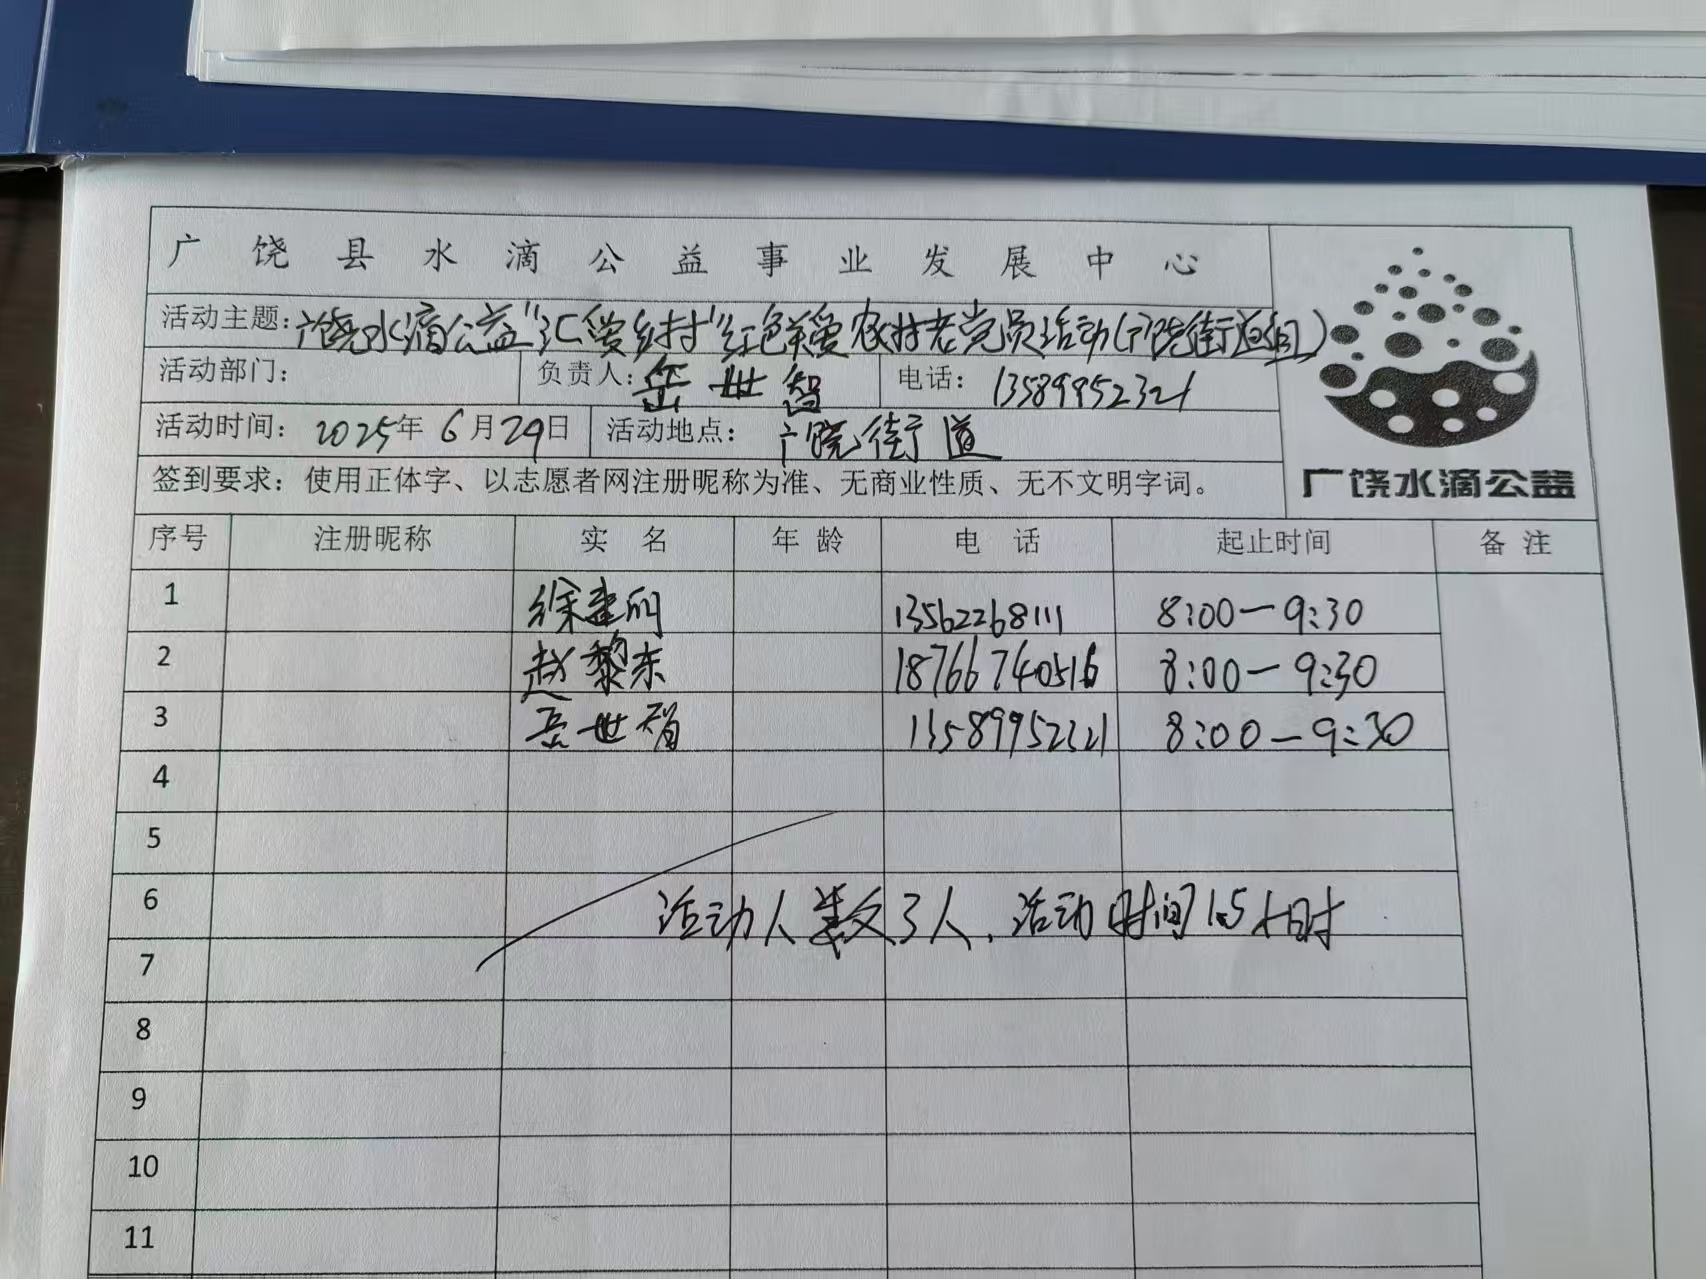 广饶县水滴公益事业发展中心
活动主题：广饶水滴公益"汇爱乡村"红色关爱农村老党员活动（广饶街道组）
活动部门： 负责人：岳世智 电话：13589952321
活动时间：2025年6月29日 活动地点：广饶街道
签到要求：使用正体字、以志愿者网注册昵称为准、无商业性质、无不文明字词。
广饶水滴公益
序号 注册昵称 实名 年龄 电话 起止时间 备注
1 徐建丽 13562268111 8:00—9:30
2 赵黎东 18766740516 8:00—9:30
3 岳世智 13589952321 8:00—9:30
4
5
6 活动人数3人、活动时间1.5小时
7
8
9
10
11